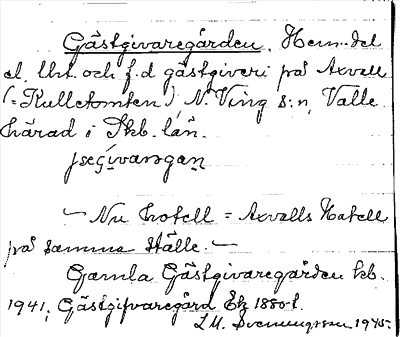 Gästgivaregården. Hem.del
el. lht. och f.d gästgiveri på Axvall
(=Kulletomten) N. Ving s:n, Valle
härad i Skb. län.
— Nu hotell = Axvalls Hotell
på samma ställe. —
Gamla Gästgivaregården kb.
1941; Gästgifvaregård Ek 1880-t.
L.M. Svenungsson 1945.